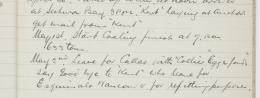 at Sechura Bay 3 P.M. "Kent" laying at anchor
get mail from "Kent"
May 1st, Start Coaling finish at 9 P.M.
tons
May 2nd Leave for Callao with
say Good bye to "Kent" who leave for
Esquimalt Vancouver for refitting purpose